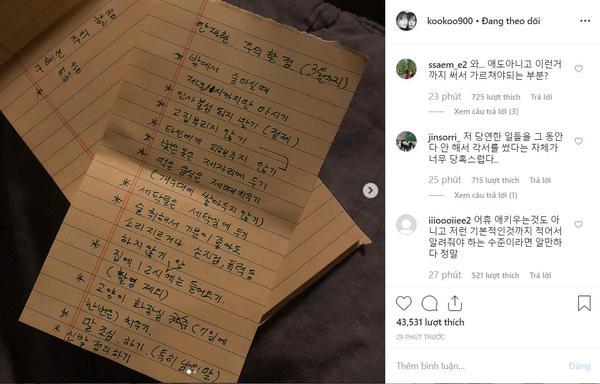 구혜선 주의 할 점
* 없음
안재현 주의 할 점
* 밖에서 술마실때
저녁 11시까지만 마시기
* 인사불성 되지 말기 (절제)
* 고집부리지 않기
* 타인에게 피해주지 않기
벗은 옷은 제자리에 두기
* 먹은 음식은 제때 치우기
* 세탁물은 세탁실에 두기
* 술 취해서 기분이 좋아도
소리 지르거나 손찌검, 폭력 등
하지 않기
집에 12시 안에는 들어오기.
(촬영 제외)
* 고양이 화장실
한번은) 치우기.
* 말 조심 하기. (특히 남의 말)
* 신발 정리하기
kookoo900 • Đang theo dõi
ssaem_e2 와... 애도아니고 이런거
까지 써서 가르쳐야되는 부분?
23 phút 725 lượt thích Trả lời
Xem câu trả lời (3)
jinsorri_ 저 당연한 일들을 그 동안
다 안 해서 각서를 썼다는 자체가
너무 당혹스럽다..
Xem câu trả lời (1)
iiioooiiee2 어휴 애키우는것도 아
니고 저런 기본적인것까지 적어서
알려줘야 하는 수준이라면 알만하
다 정말
27 phút 521 lượt thích Trả lời
43,531 lượt thích
29 PHÚT TRƯỚC
Thêm bình luận... Đăng